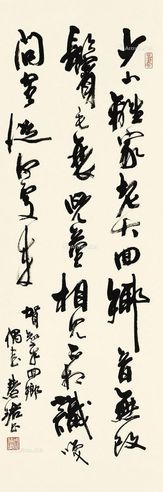 少小離家老大回鄉音無改
鬢毛衰兒童相見不相識笑
問客從何處來
賀知章回鄉
偶書